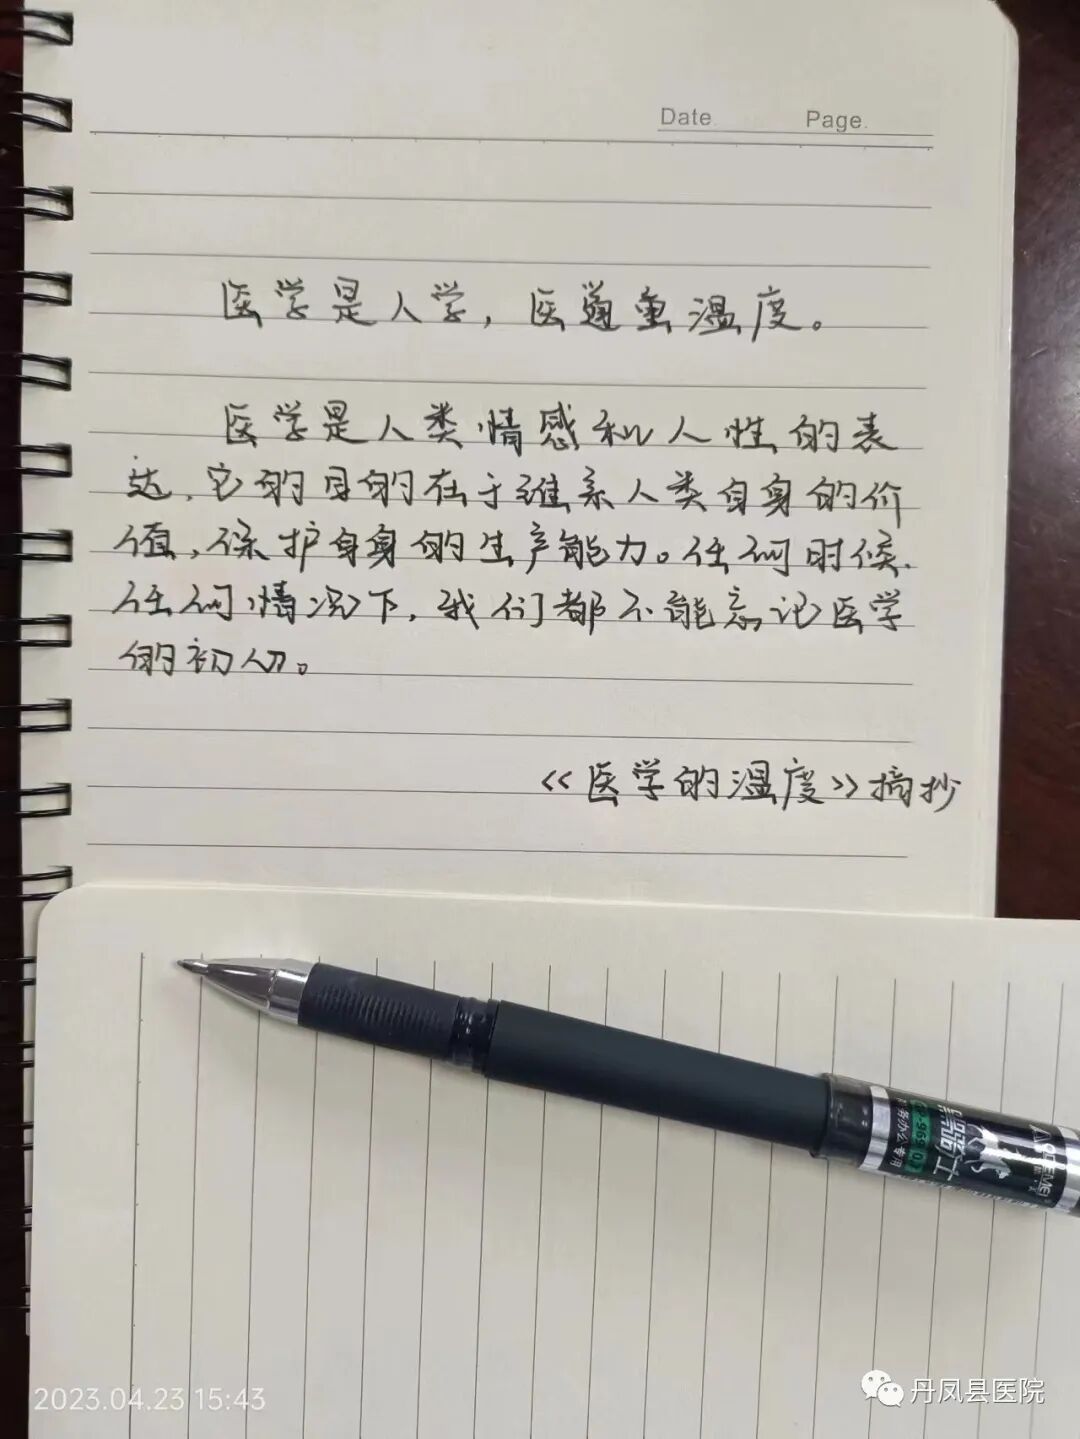 Date.
Page.
医学是人学，医道重温度。
医学是人类情感和人性的表
达，它的目的在于维系人类自身的价
值，保护自身的生产能力。任何时候，
任何情况下，我们都不能忘记医学
的初心。
《医学的温度》摘抄
AODEMEI
黑骑士
GP-969
商务办公专用
2023.04.23 15:43
丹凤县医院